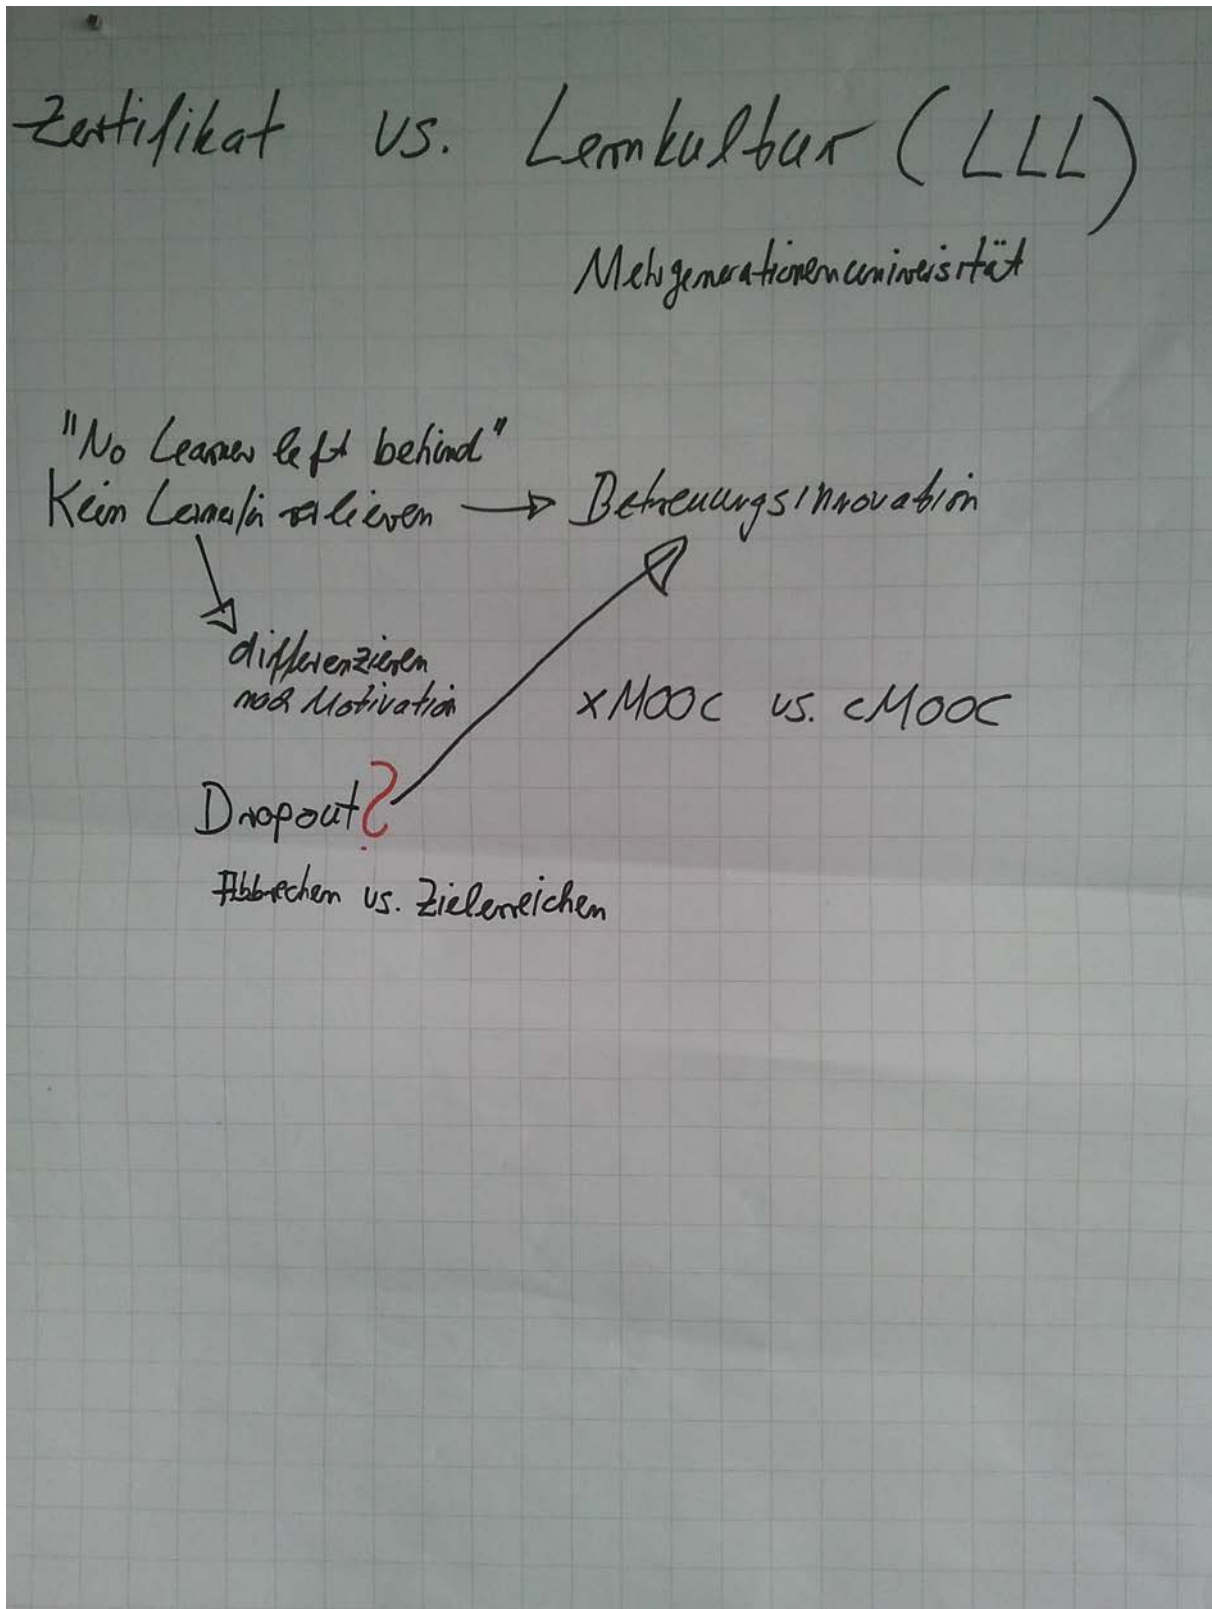 Zertifikat vs. Lernkultur (LLL)
Mehrgenerationenuniversität
"No Learner left behind"
Kein Lerner/in verlieren → Betreuungsinnovation
differenzieren
nach Motivation
xMOOC vs. cMOOC
Dropout?
Abbrechen vs. Zielerreichen